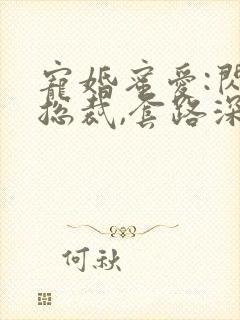 寵婚蜜愛:閃
總裁,套路深
何秋